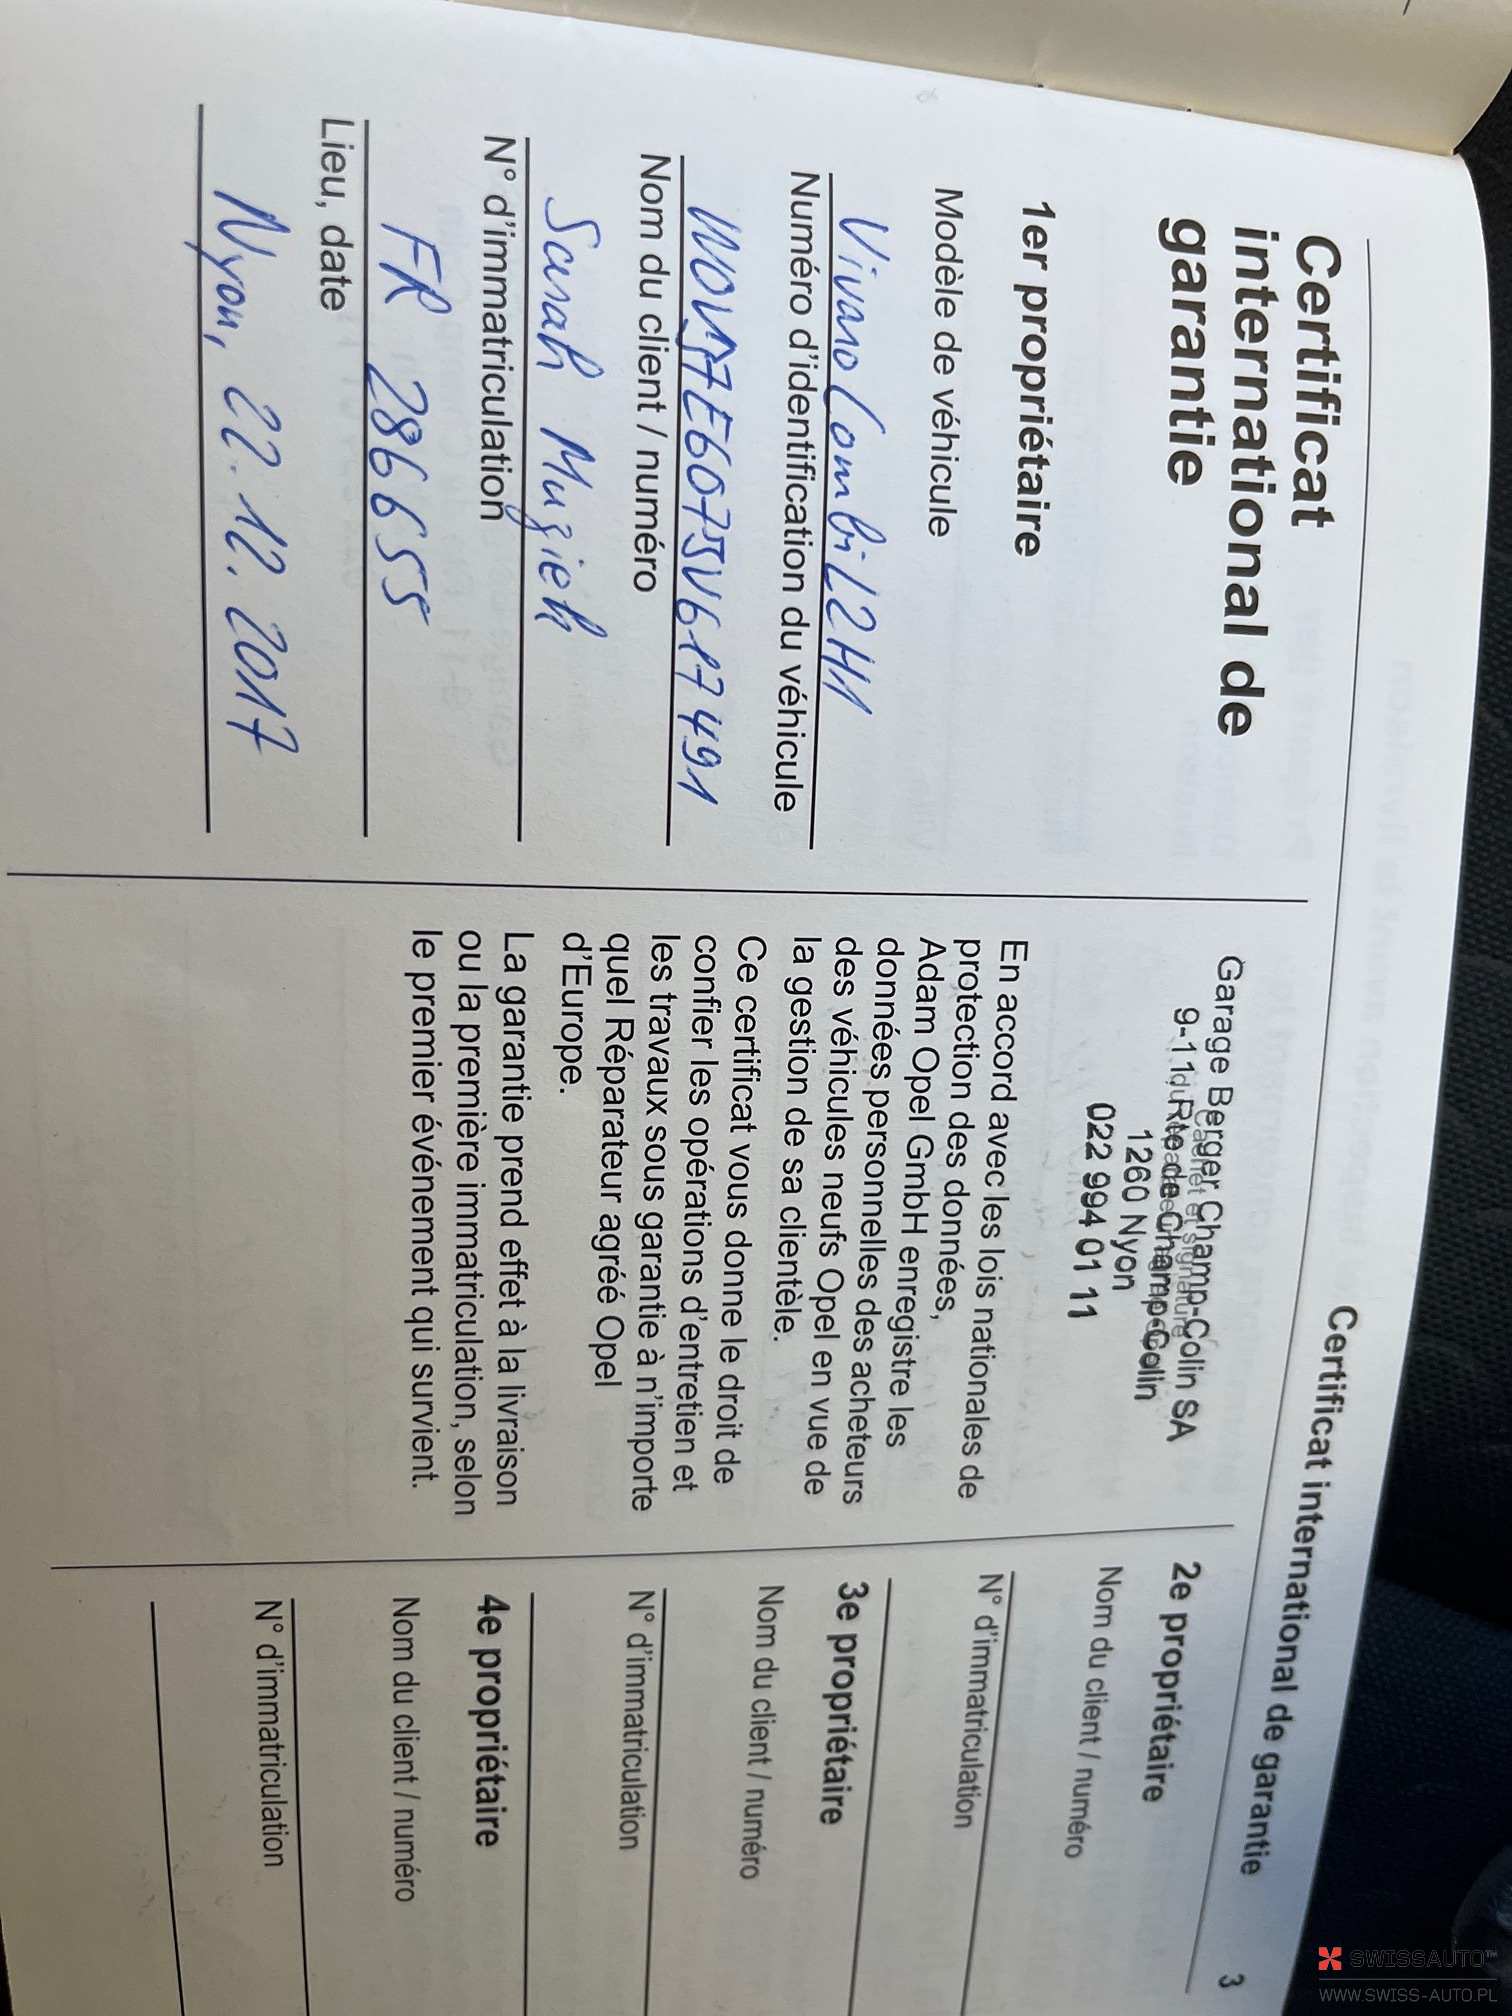 Certificat international de garantie 3
Certificat
international de
garantie
1er propriétaire
Modèle de véhicule
Vivaro Combi L2H1
Numéro d'identification du véhicule
W0VJ7E607JV617491
Nom du client / numéro
Sarah
N° d'immatriculation
FR 286655
Lieu, date
Nyon, 22.12.2017
Garage Berger Champ-Colin SA
9-11, Rte de Champ-Colin
1260 Nyon
022 994 01 11
Cachet et signature
En accord avec les lois nationales de
protection des données,
Adam Opel GmbH enregistre les
données personnelles des acheteurs
des véhicules neufs Opel en vue de
la gestion de sa clientèle.
Ce certificat vous donne le droit de
confier les opérations d'entretien et
les travaux sous garantie à n'importe
quel Réparateur agréé Opel
d'Europe.
La garantie prend effet à la livraison
ou la première immatriculation, selon
le premier événement qui survient.
2e propriétaire
Nom du client / numéro
N° d'immatriculation
3e propriétaire
Nom du client / numéro
N° d'immatriculation
4e propriétaire
Nom du client / numéro
N° d'immatriculation
SWISSAUTO™
WWW.SWISS-AUTO.PL